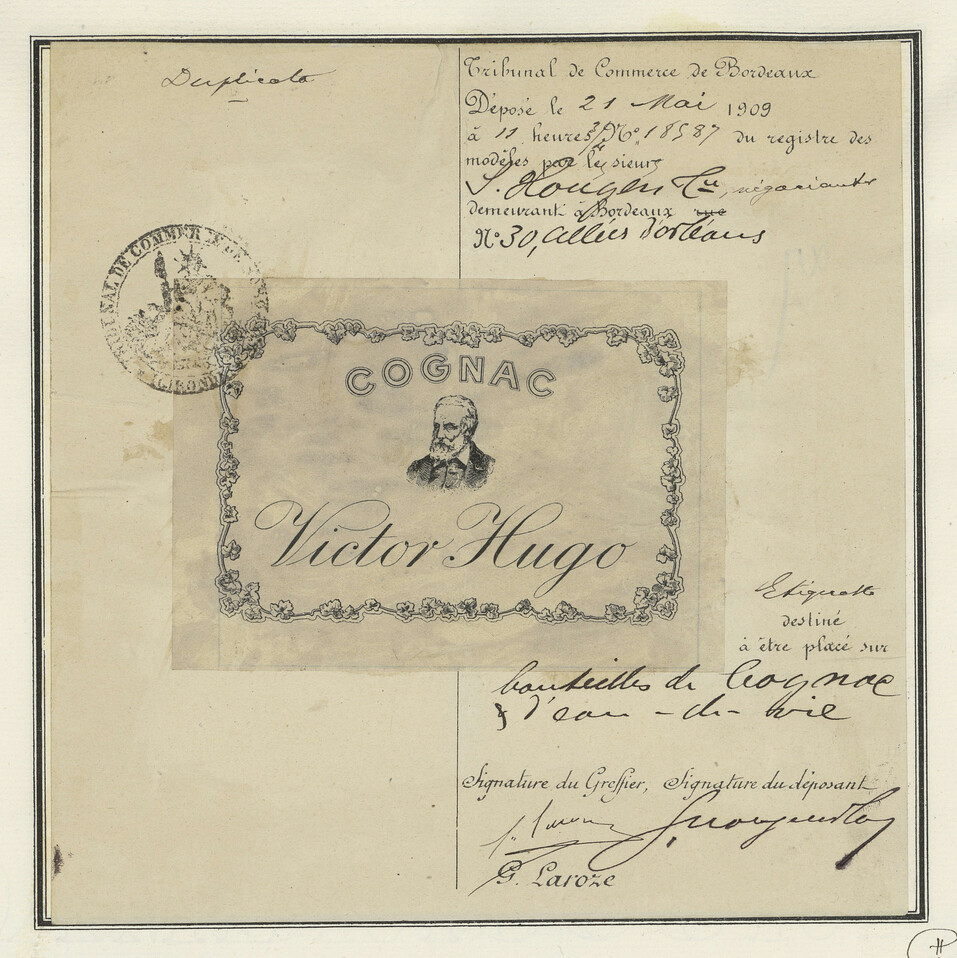 Duplicata
Tribunal de Commerce de Bordeaux
Déposé le 21 Mai 1909
à 11 heures N° 18587 du registre des
modèles par les sieurs
négociants
demeurant à Bordeaux rue
N° 30, allées d'orléans
TRIBUNAL DE COMMERCE DE
GIRONDE
COGNAC
Victor Hugo
Etiquette
destiné
à être placé sur
bouteilles de Cognac
& d'eau-de-vie
Signature du Greffier, Signature du déposant
G. Laroze
H